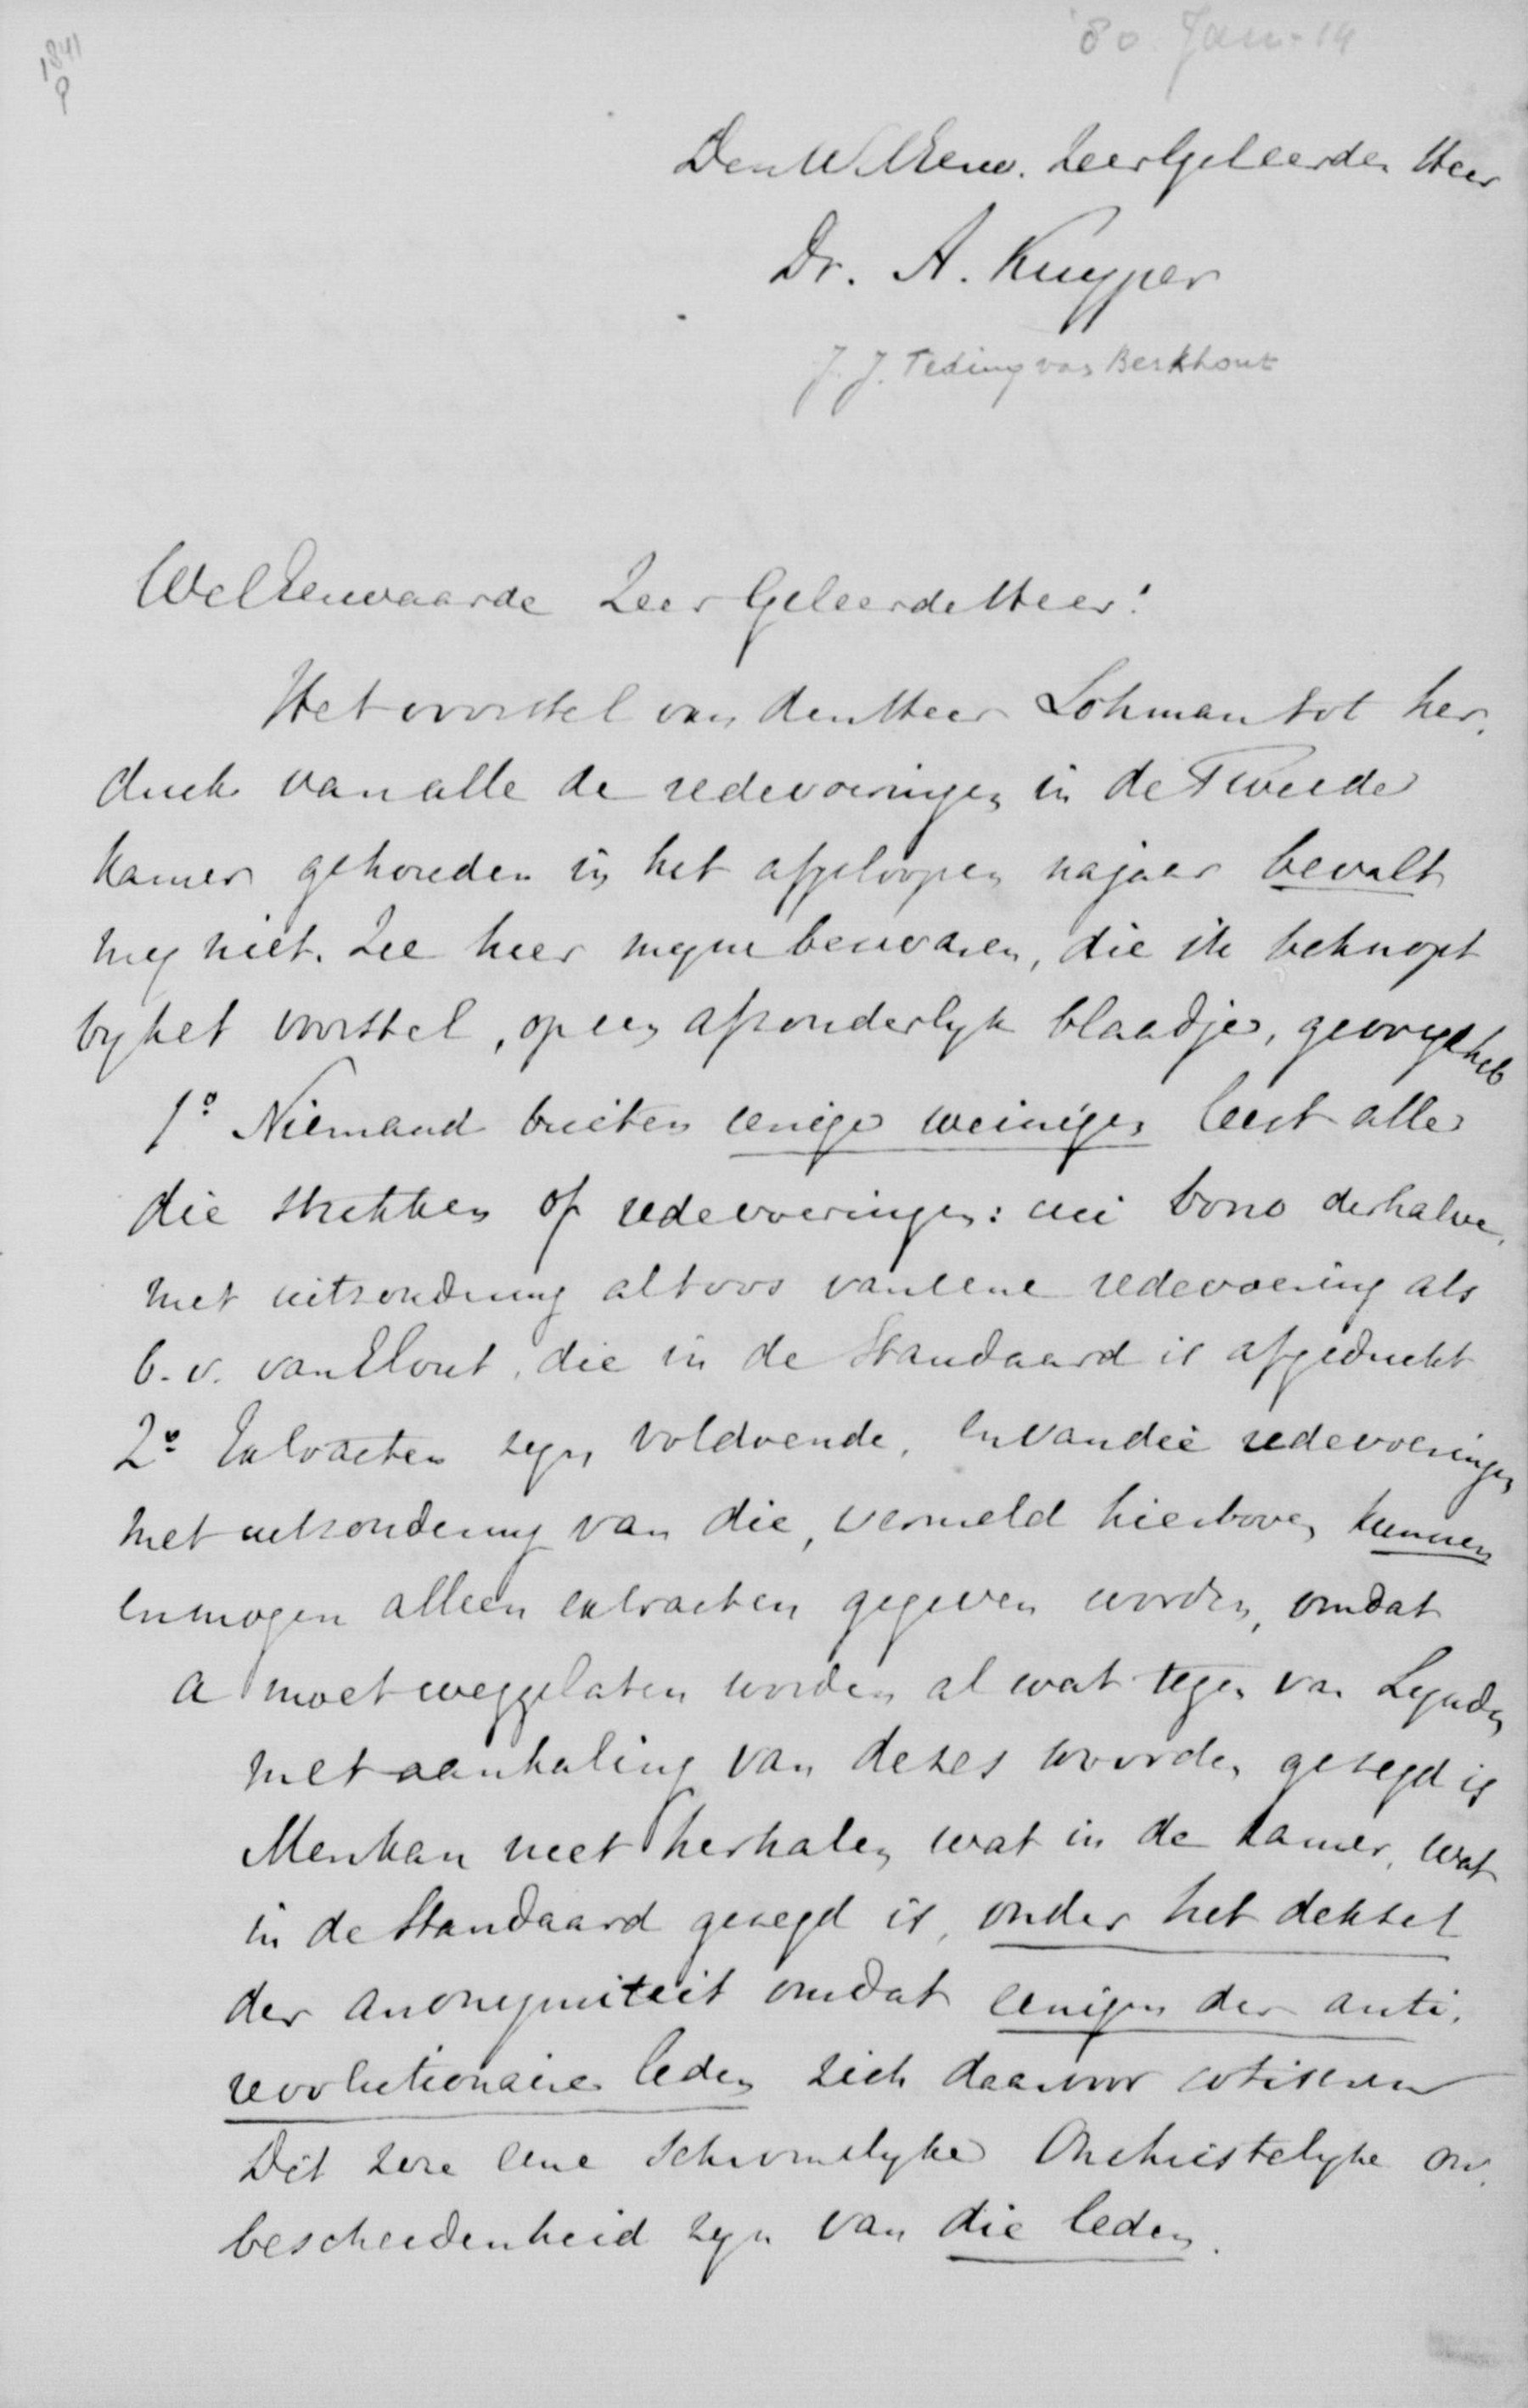 1841
P
'80. Jan-14
Den WelEerw. ZeerGeleerden Heer
Dr. A. Kuyper
J. J. Teding van Berkhout
WelEerwaarde ZeerGeleerde Heer!
Het voorstel van den Heer Lohman tot her,
druk van alle de redevoeringen in de Tweede
Kamer gehouden in het afgeloopen najaar bevalt
mij niet. Zie hier mijne bezwaren, die ik beknopt
by het voorstel, op een afzonderlyk blaadje, gevoegd heb
1º Niemand buiten eenige weinigen leest alle
die stukken of redevoeringen: cui bono derhalve,
met uitzondering altoos van eene redevoering als
b.v. van Elout, die in de Standaard is afgedrukt
2º Extracten zyn voldoende, en van die redevoeringen
met uitzondering van die, vermeld hierboven kunnen
en mogen alleen extracten gegeven worden, omdat
a moet weggelaten worden al wat tegen van Lynden
met aanhaling van dezes woorden gezegd is
Men kan niet herhalen wat in de kamer, wat
in de Standaard gezegd is, onder het deksel
der anonymiteit omdat eenigen der anti,
revolutionaire leden zich daarvoor cotiseren
Dit zou eene schromelyke Onchristelyke on,
bescheidenheid zyn van die leden.